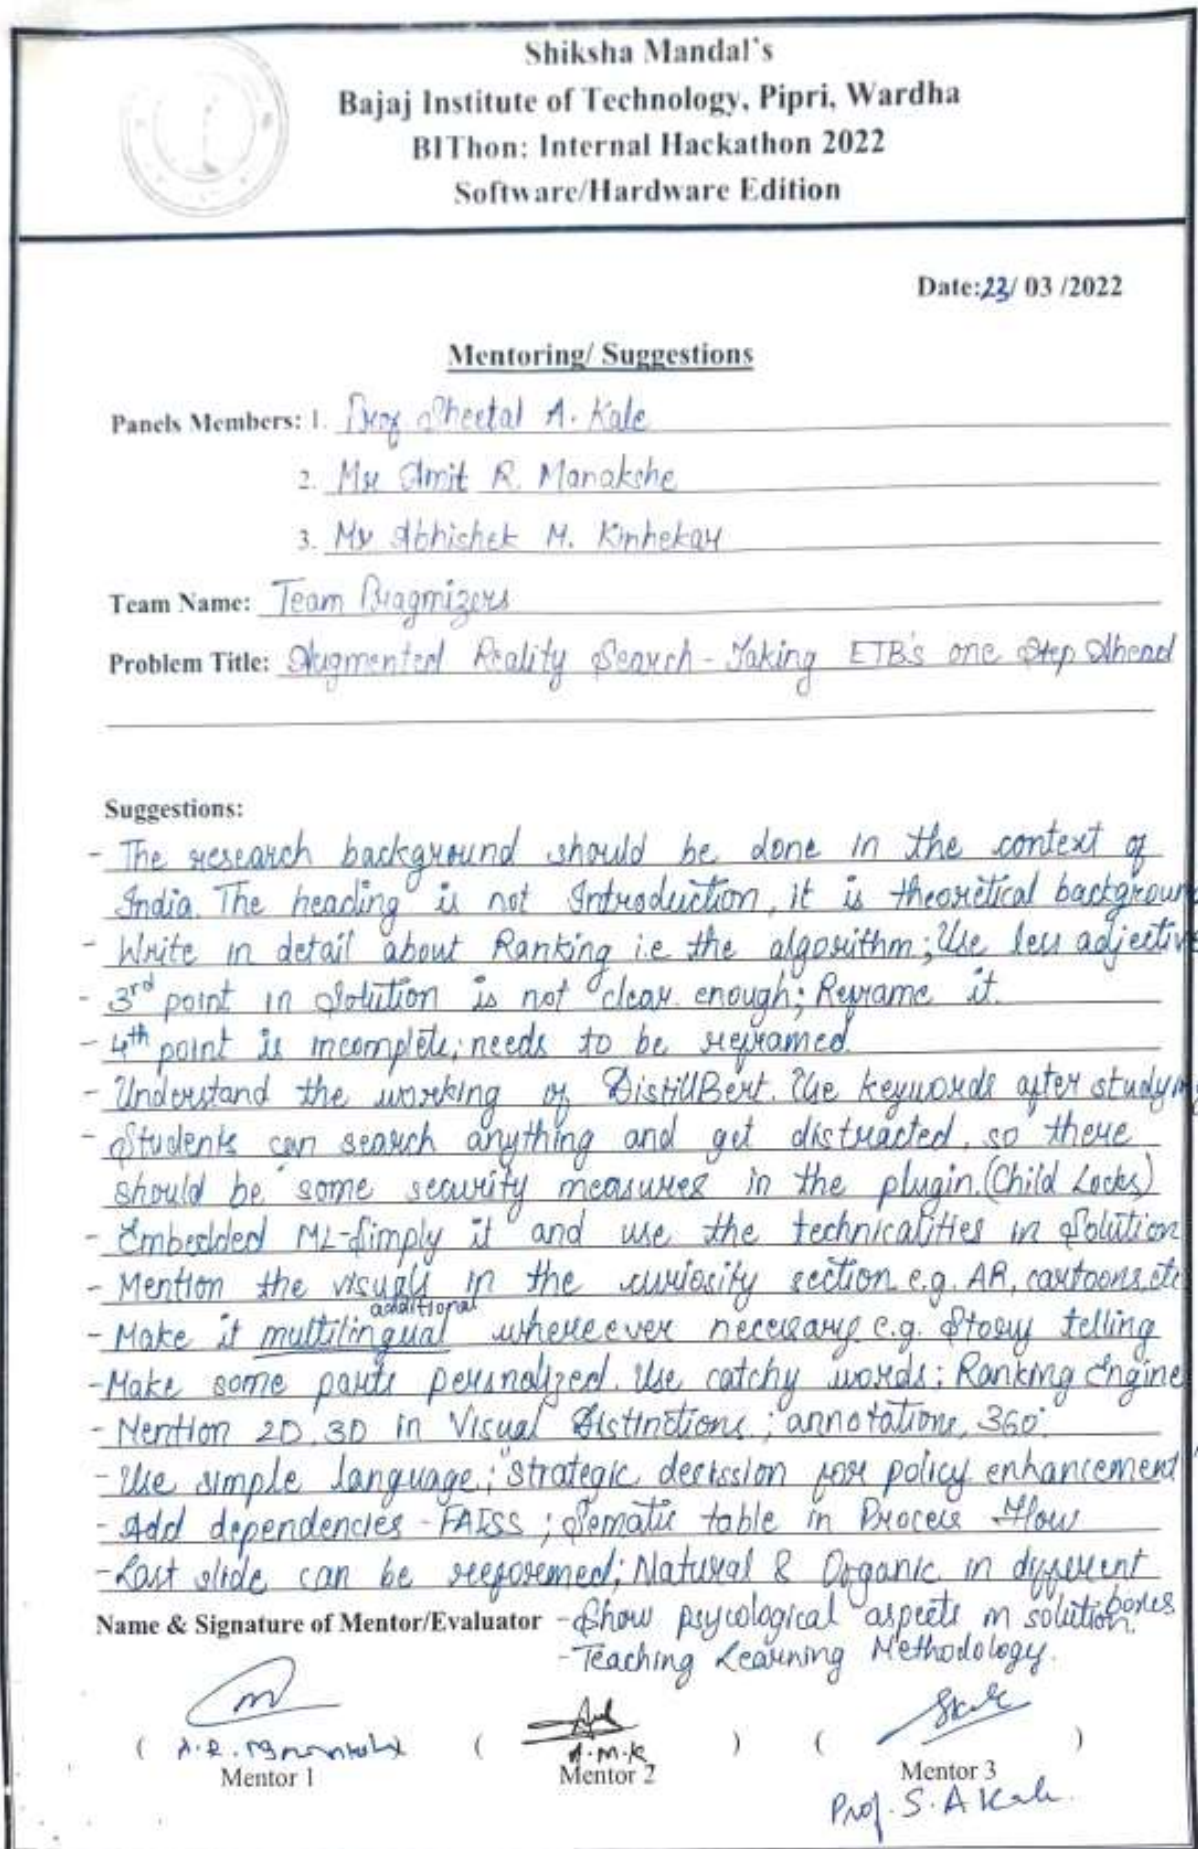 Shiksha Mandal's
Bajaj Institute of Technology, Pipri, Wardha
BIThon: Internal Hackathon 2022
Software/Hardware Edition
Date:23/ 03 /2022
Mentoring/ Suggestions
Panels Members: 1. Prof Sheetal A. Kale
2. Mr Amit R. Manakshe
3. Mr Abhishek M. Kinhekar
Team Name: Team Pragmizers
Problem Title: Augmented Reality Search - Taking ETB's one Step Ahead
Suggestions:
- The research background should be done in the context of
India. The heading is not Introduction, it is theoretical background
- Write in detail about Ranking i.e the algorithm; Use less adjective
- 3rd point in Solution is not clear enough; Reframe it.
- 4th point is incomplete; needs to be reframed.
- Understand the working of DistillBert. Use keywords after study
- Students can search anything and get distracted, so there
should be some security measures in the plugin. (Child Locks)
- Embedded ML-Simply it and use the technicalities in Solution
- Mention the visuals in the curiosity section e.g. AR, cartoons, etc
additional
- Make it multilingual whereever necessary e.g. Story telling
- Make some parts persnalized. Use catchy words; Ranking Engine
- Mention 2D, 3D in Visual Distinctions; annotations, 360°.
- Use simple language; strategic decission for policy enhancement
- Add dependencies - FAISS; Sematic table in Process Flow
- Last slide can be reeforemed; Natural & Organic in different
boxes
Name & Signature of Mentor/Evaluator - Show psycological aspects in solution.
- Teaching Learning Methodology.
( A.R. ( A.M.K ) ( )
Mentor 1 Mentor 2 Mentor 3
Prof. S. A Kale.